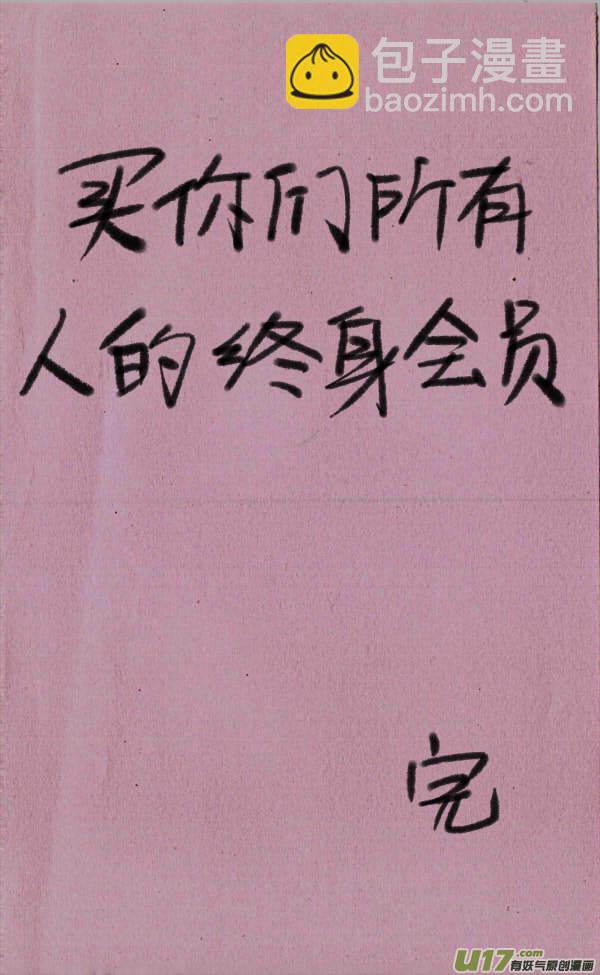 包子漫畫
baozimh.com
买你们所有
人的终身会员
完
U17.com
有妖气原创漫画